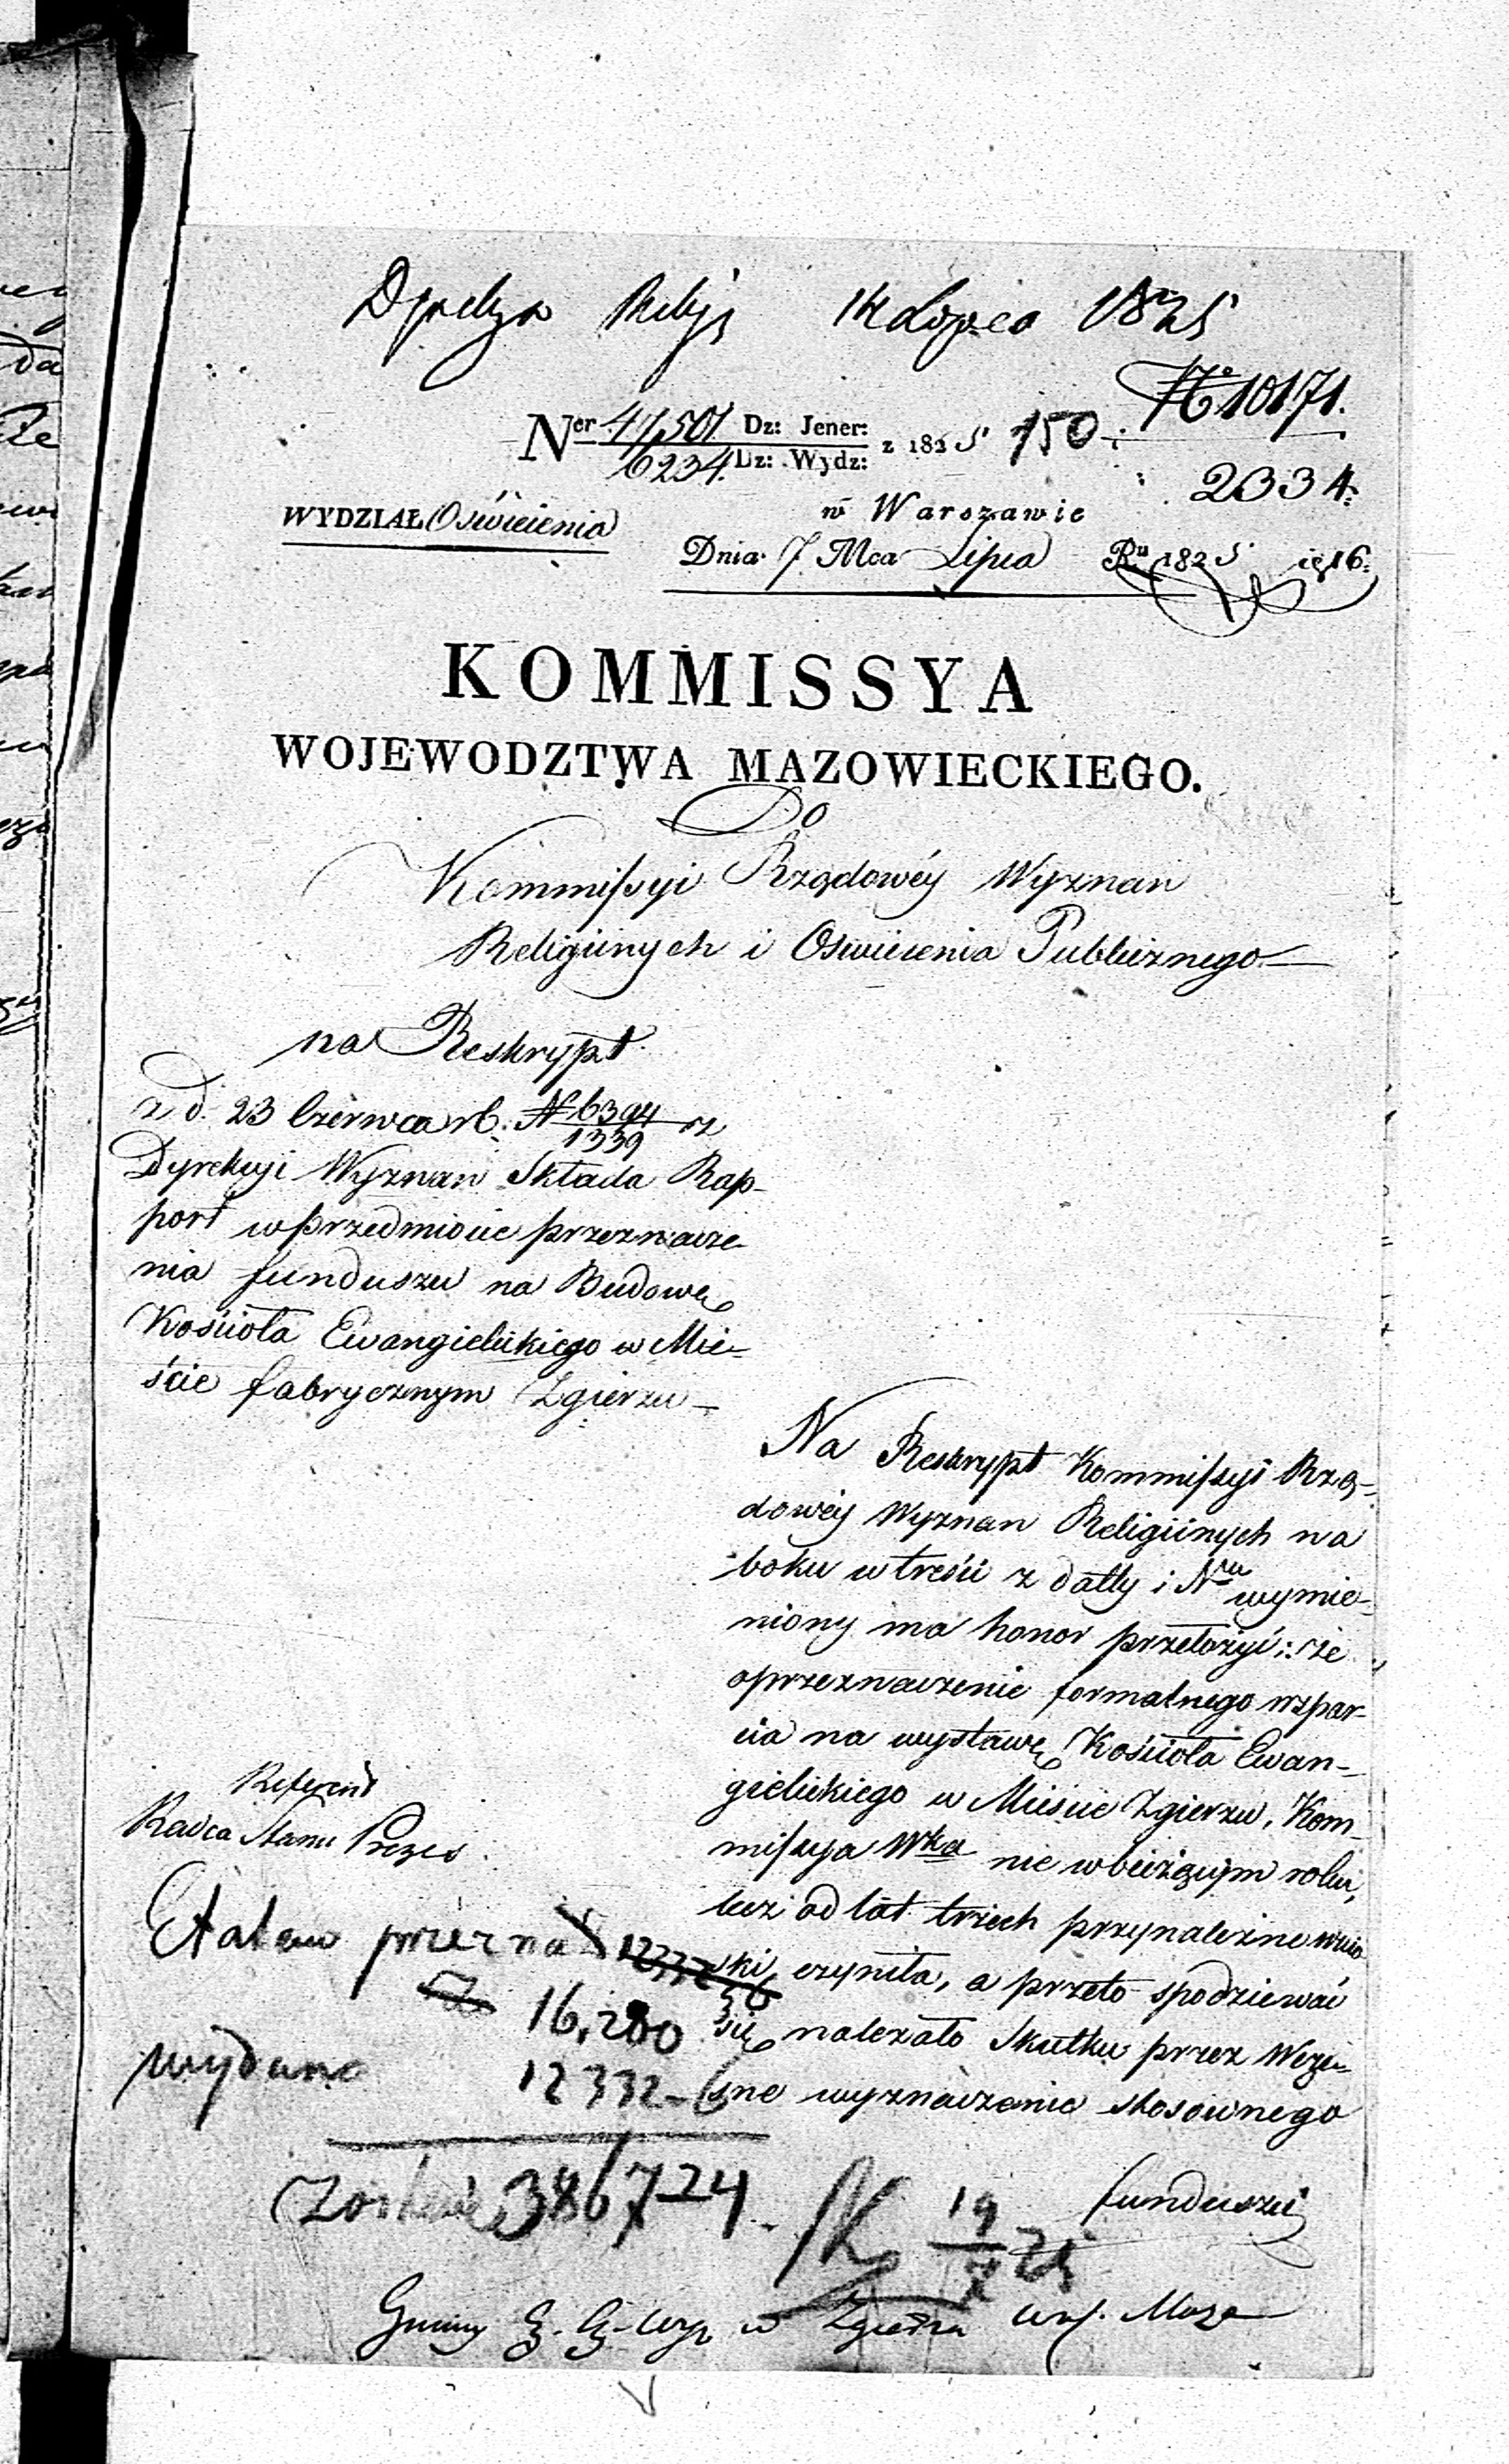 14 Lipca 1825
No 10171.
Ner 47,501. Dz: Jener: z 1825 150
6234. Dz: Wydz:
2334
WYDZIAŁ Oświecenia
w Warszawie
Dnia 7 Mca Lipca Ru 1825
KOMMISSYA
WOJEWODZTWA MAZOWIECKIEGO.
Do
Kommissyi Rządowéy Wyznan
Religiinych i Oswiecenia Publicznego
na Reskrypt
z d. 23 Czerwca rb: N 6394/1339 z
Dyrekcyi Wyznan Składa Rap-
port w przedmiocie przeznacze-
nia funduszu na Budowę
Kościoła Ewangielickiego w Mie-
ście fabrycznym Zgierzu
Na Reskrypt Kommissyi Rzą-
dowéy Wyznan Religiinych na
boku w treści z datty i Nru wymie-
niony ma honor przełożyć: że
o przeznaczenie formalnego wspar-
cia na wystawę Kościoła Ewan-
gielickiego w Mieście Zgierzu, Kom-
missya Wka nie w bieżącym roku,
lecz od lat trzech przynależne wnio-
ski czyniła, a przeto spodziewać
się należało Skutku przez Wcze-
sne wyznaczenie stosownego
funduszu
Referent
Radca Stanu Prezes
Etatem przezna 12332 6
16,200
wydano 12332-6
zostaie 3867-24
19/7 25
Gminy w Zgierzu Maz